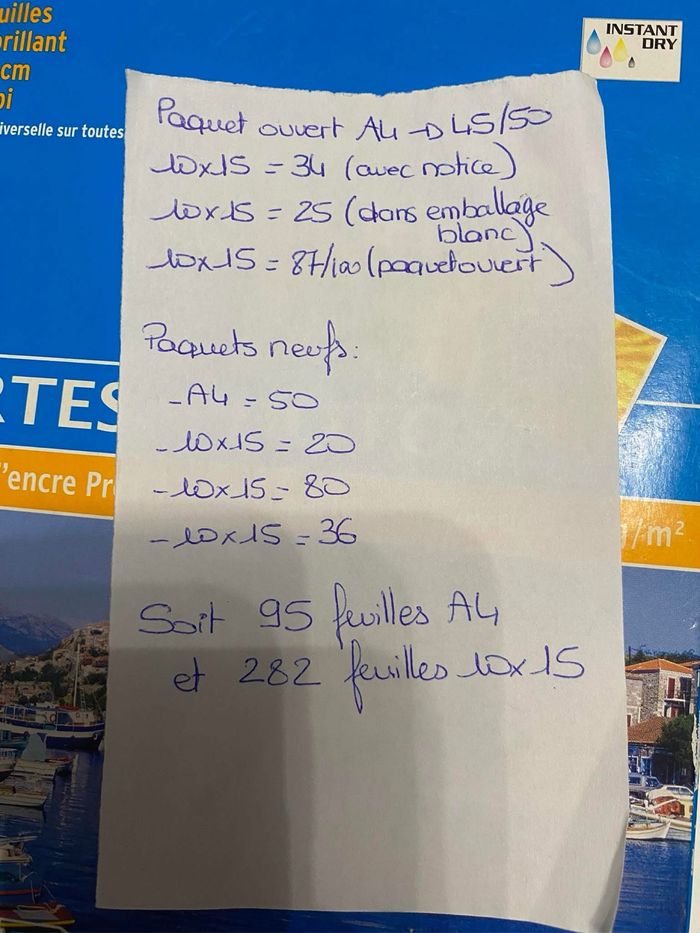 uilles
rillant
cm
pi
iverselle sur toutes
INSTANT
DRY
Paquet ouvert A4 → 45/50
10x15 = 34 (avec notice)
10x15 = 25 (dans emballage
blanc)
10x15 = 87/100 (paquet ouvert)
Paquets neufs:
- A4 = 50
- 10x15 = 20
- 10x15 = 80
- 10x15 = 36
Soit 95 feuilles A4
et 282 feuilles 10x15
RTES
'encre Pr
/m²